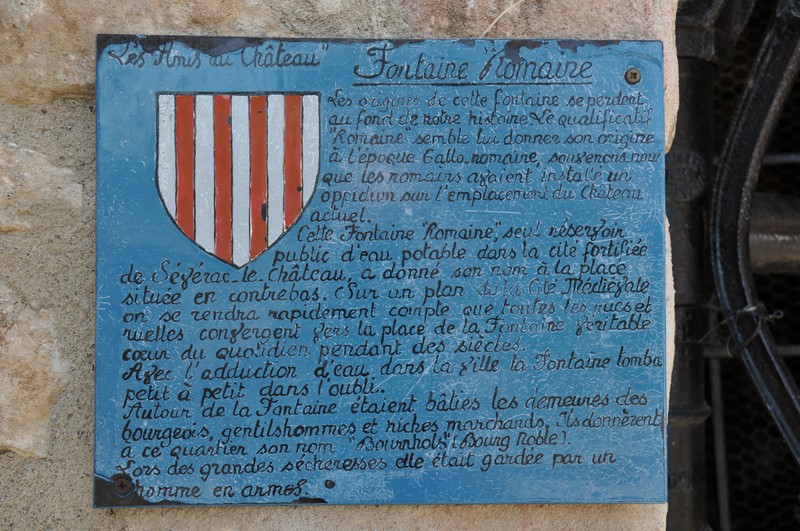 "Les Amis du Château"
Fontaine "Romaine
Les origines de cette fontaine se perdent
au fond de notre histoire. Le qualificatif
"Romaine" semble lui donner son origine
à l'époque Gallo-romaine, souvenons nous
que les romains avaient installé un
oppidum sur l'emplacement du Château
actuel.
Cette Fontaine "Romaine", seul réservoir
public d'eau potable dans la cité fortifiée
de Sévérac-le-Château, a donné son nom à la place
située en contrebas. (Sur un plan de la Cité Médiévale
on se rendra rapidement compte que toutes les rues et
ruelles convergent vers la place de la Fontaine véritable
cœur du quotidien pendant des siècles.
Avec l'adduction d'eau dans la ville la Fontaine tomba
petit à petit dans l'oubli..
Autour de la Fontaine étaient bâties les demeures des
bourgeois, gentilshommes et riches marchands. Ils donnèrent
à ce quartier son nom "Bournhols" (Bourg Noble).
Lors des grandes sécheresses elle était gardée par un
homme en armes.